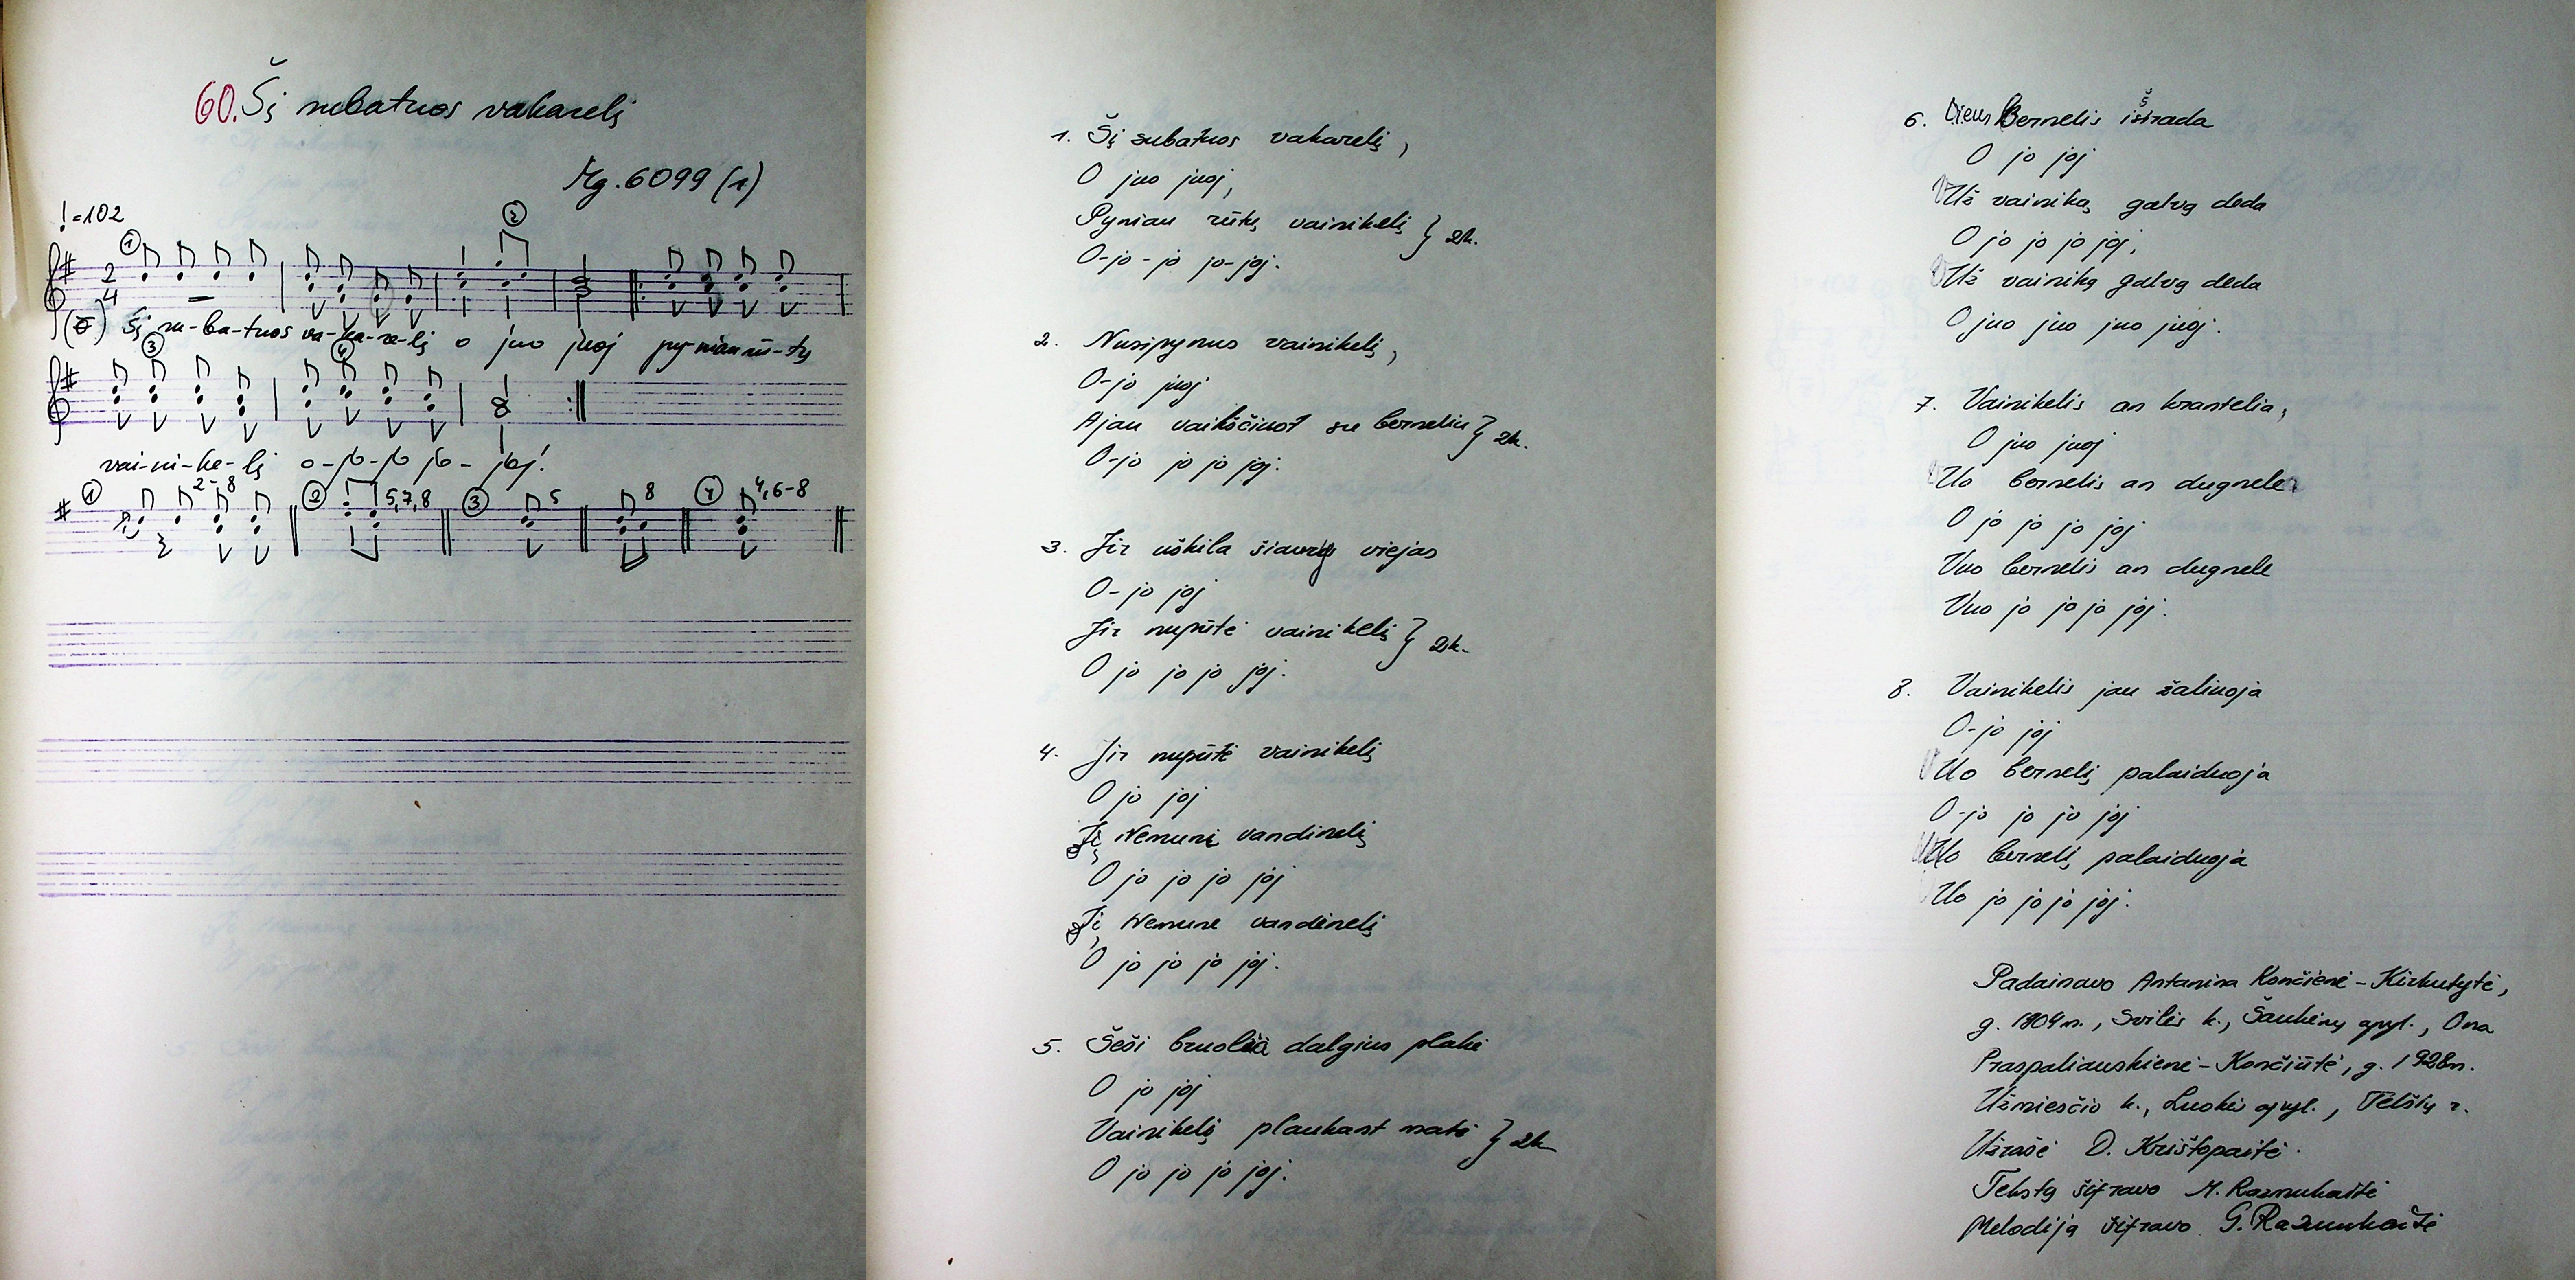 60. Šį subatuos vakarelį
Mg. 6099 (1)
=102
① ②
2
4
Šį su-ba-tuos va-ka-re-lį o juo juoj py-niau rū-tų
③ ④
vai-ni-ke-lį o-jo-jo jo-joj.
① 2-8 ② 5,7,8 ③ 5 8 ④ 4,6-8
1. Šį subatuos vakarelį,
O juo juoj,
Pyniau rūtų vainikelį } 2k.
O-jo-jo jo-joj.
2. Nusipynus vainikelį,
O-jo juoj
Ajau vaikščiuot su berneliu } 2k.
O-jo jo jo joj.
3. Jir uškila šiaurys viejas
O-jo joj
Jir nupūtė vainikelį } 2k.
O jo jo jo joj.
4. Jir nupūtė vainikelį
O jo joj
Jį Nemunė vandinelį
O jo jo jo joj
Jį Nemunė vandinelį
O jo jo jo joj.
5. Šeši bruoliai dalgius plakė
O jo joj
Vainikelį plaukant matė } 2k
O jo jo jo joj.
6. Viens bernelis išsirada
O jo joj
Už vainiką galvą deda
O jo jo jo joj,
Už vainiką galvą deda
O juo juo juo juoj.
7. Vainikelis an krantelia,
O juo juoj
Uo bernelis an dugnele
O jo jo jo joj
Vuo bernelis an dugnele
Vuo jo jo jo joj.
8. Vainikelis jau žaliuoja
O-jo joj
Uo bernelį palaiduoja
O-jo jo jo joj
Uo bernelį palaiduoja
Uo jo jo jo joj.
Padainavo Antanina Končienė-Kirkutytė,
g. 1904 m., Svilės k., Šaukėnų apyl., Ona
Praspaliauskienė-Končiūtė, g. 1928 m.
Užmiesčio k., Luokės apyl., Telšių r.
Užrašė D. Krištopaitė.
Tekstą šifravo M. Razmukaitė
Melodiją šifravo G. Razmukaitė